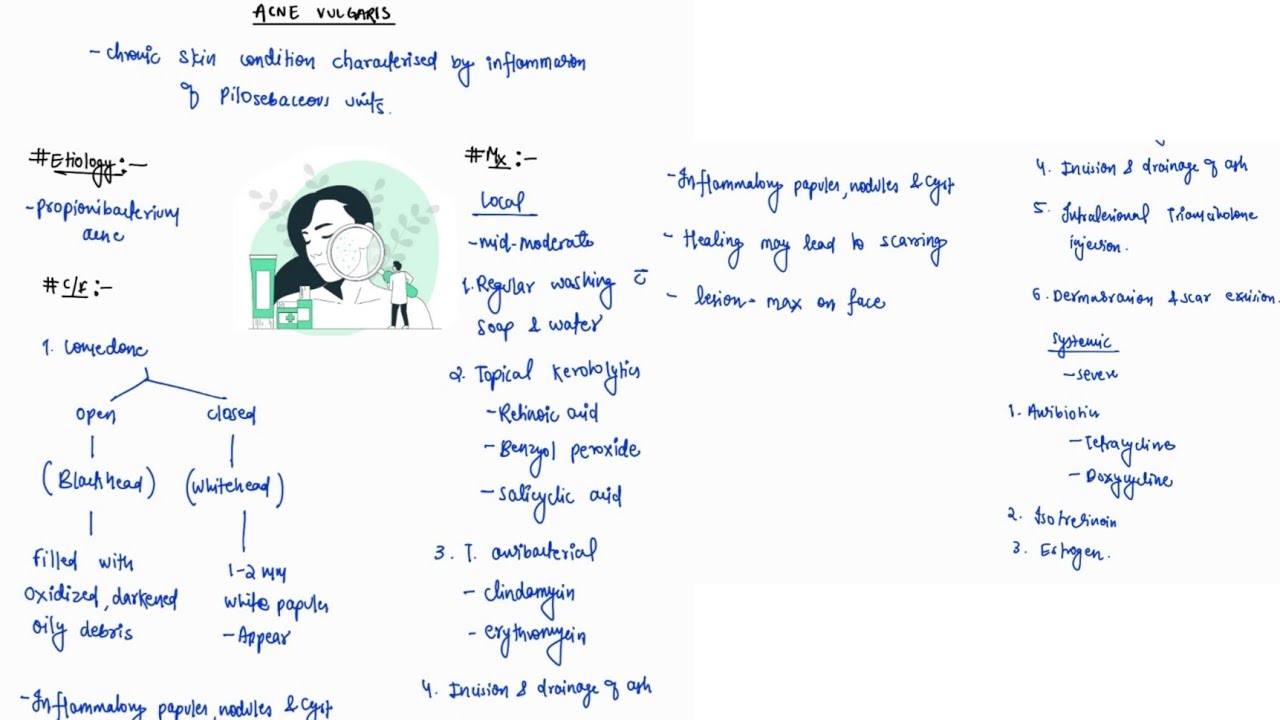 ACNE VULGARIS
- chronic skin condition characterised by inflammation
of Pilosebaceous units.
#Etiology:-
- propionibacterium
acne
# C/F:-
1. Comedone
open
closed
(Blackhead)
(Whitehead)
filled with
oxidized, darkened
oily debris
1-2 mm
white papules
- Appear
- Inflammatory papules, nodules & Cyst
#Mx:-
Local
- mid-moderate
1. Regular washing c̄
soap & water
2. Topical Keratolytics
- Retinoic acid
- Benzyol peroxide
- Salicyclic acid
3. T. antibacterial
- clindamycin
- erythromycin
4. Incision & drainage of
- Inflammatory papules, nodules & Cyst
- Healing may lead to scarring
- lesion - max on face
4. Incision & drainage of
5. Intralesional Triamcinolone
injection.
6. Dermabrasion & scar excision.
Systemic
- severe
1. Antibiotics
- Tetracycline
- Doxycycline
2. Isotretinoin
3. Estrogen.